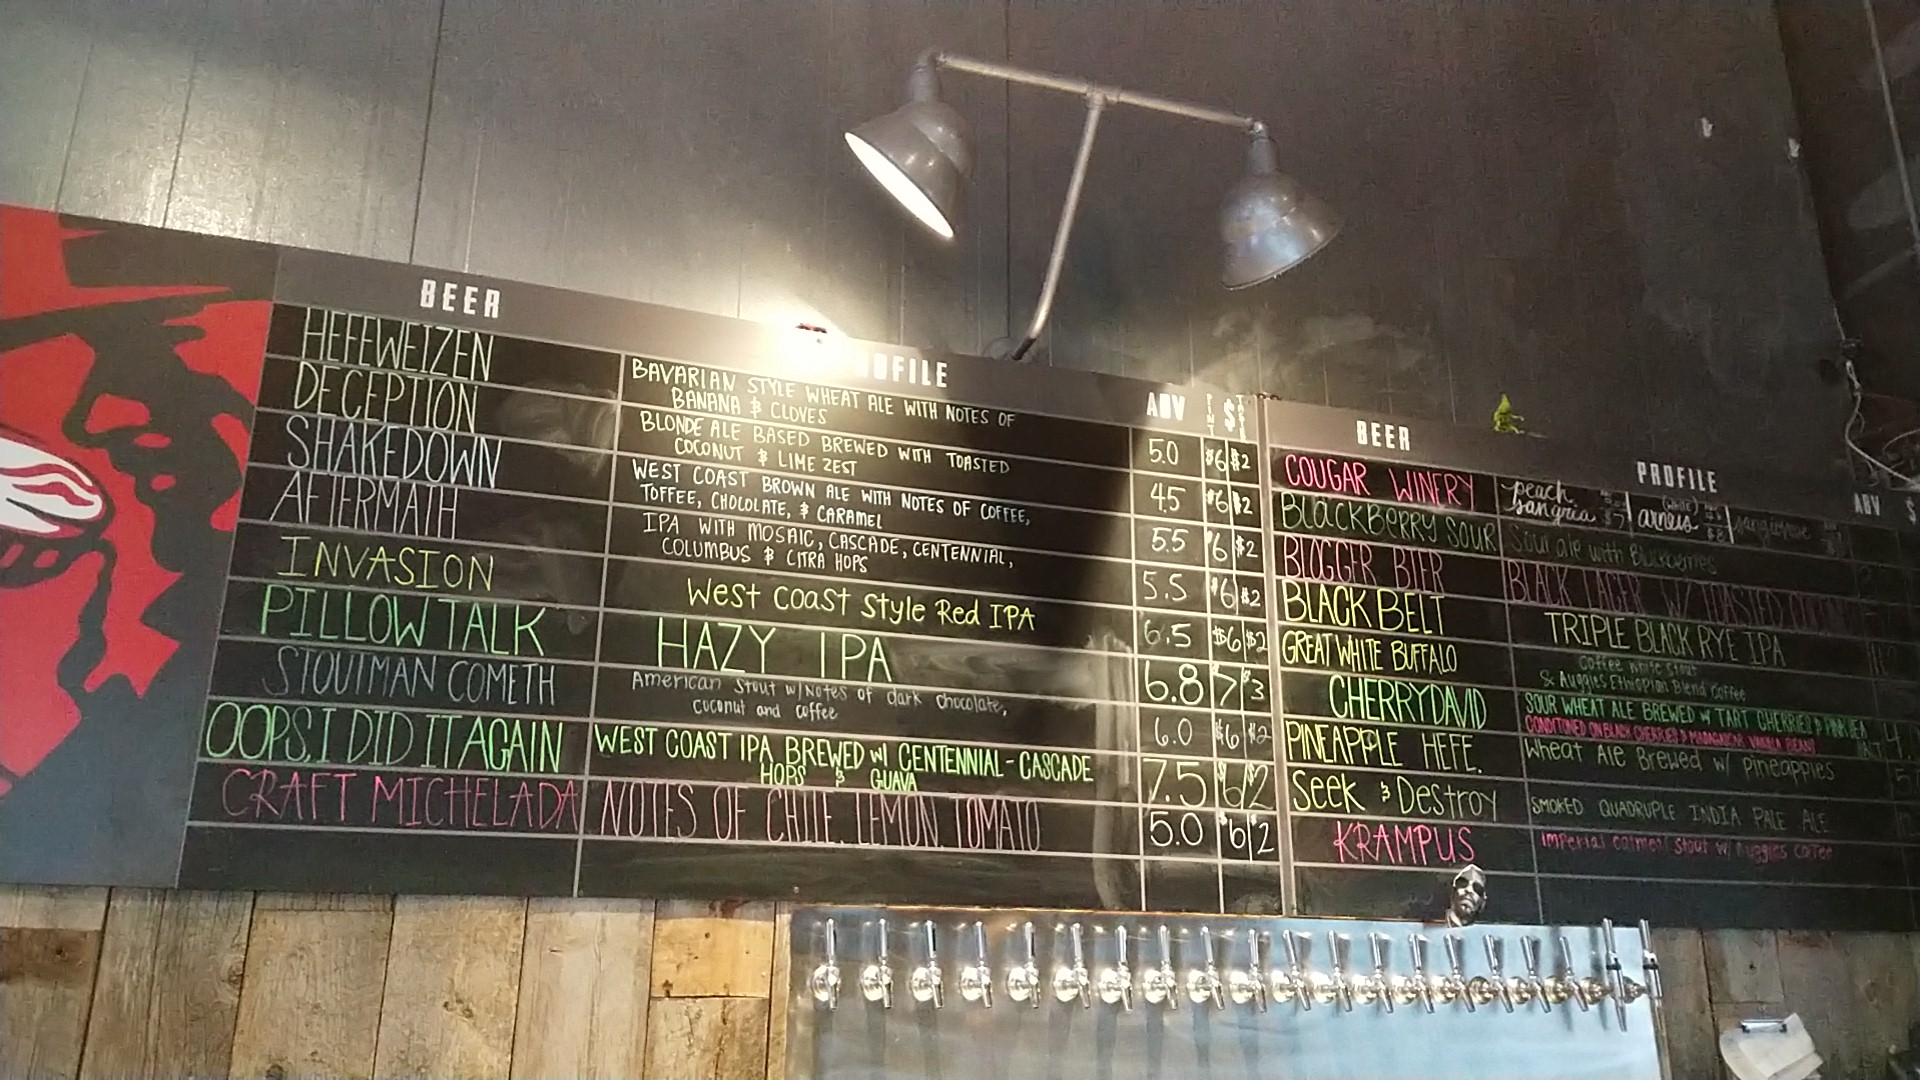 BEER
PROFILE
ABV PINT $
HEFEWEIZEN
BAVARIAN STYLE WHEAT ALE WITH NOTES OF
BANANA & CLOVES
5.0 $6 $2
DECEPTION
BLONDE ALE BASED BREWED WITH TOASTED
COCONUT & LIME ZEST
4.5 $6 $2
SHAKEDOWN
WEST COAST BROWN ALE WITH NOTES OF COFFEE,
TOFFEE, CHOLOLATE, & CARAMEL
5.5 $6 $2
AFTERMATH
IPA WITH MOSAIC, CASCADE, CENTENNIAL,
COLUMBUS & CITRA HOPS
5.5 $6 $2
INVASION
West Coast Style Red IPA
6.5 $6 $2
PILLOWTALK
HAZY IPA
6.8 7 $3
STOUTMAN COMETH
American Stout w/Notes of dark chocolate,
coconut and coffee
6.0 $6 $2
OOPS, I DID IT AGAIN
WEST COAST IPA BREWED W/ CENTENNIAL - CASCADE
HOPS & GUAVA
7.5 $6 $2
CRAFT MICHELADA
NOTES OF CHILE, LEMON, TOMATO
5.0 $6 $2
BEER
PROFILE
ABV $
COUGAR WINERY
peach sangria $7 arneis $8 sangiovese
BLACKBERRY SOUR
Sour ale with Blackberries
BLOGGER BIER
BLACK LAGER W/ TOASTED COCONUT
BLACK BELT
TRIPLE BLACK RYE IPA
GREAT WHITE BUFFALO
Coffee white stout
& Auggies Ethiopian Blend Coffee
CHERRYDAVID
SOUR WHEAT ALE BREWED W TART CHERRIES & PINK SEA SALT
CONDITIONED ON BLACK CHERRIES & MADAGASCAR VANILLA BEANS
PINEAPPLE HEFE.
Wheat Ale Brewed w/ pineapples
Seek & Destroy
SMOKED QUADRUPLE INDIA PALE ALE
KRAMPUS
Imperial oatmeal stout w/ Auggies coffee